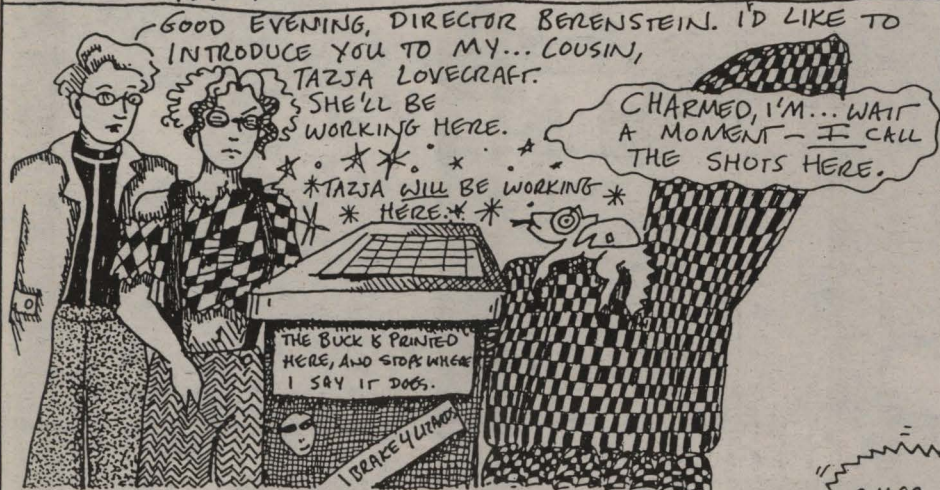 GOOD EVENING, DIRECTOR BERENSTEIN. I'D LIKE TO
INTRODUCE YOU TO MY... COUSIN,
TAZJA LOVECRAFT.
SHE'LL BE
WORKING HERE.
CHARMED, I'M... WAIT
A MOMENT – I CALL
THE SHOTS HERE.
TAZJA WILL BE WORKING
HERE.
THE BUCK IS PRINTED
HERE, AND STOPS WHERE
I SAY IT DOES.
I BRAKE 4 LIZARDS